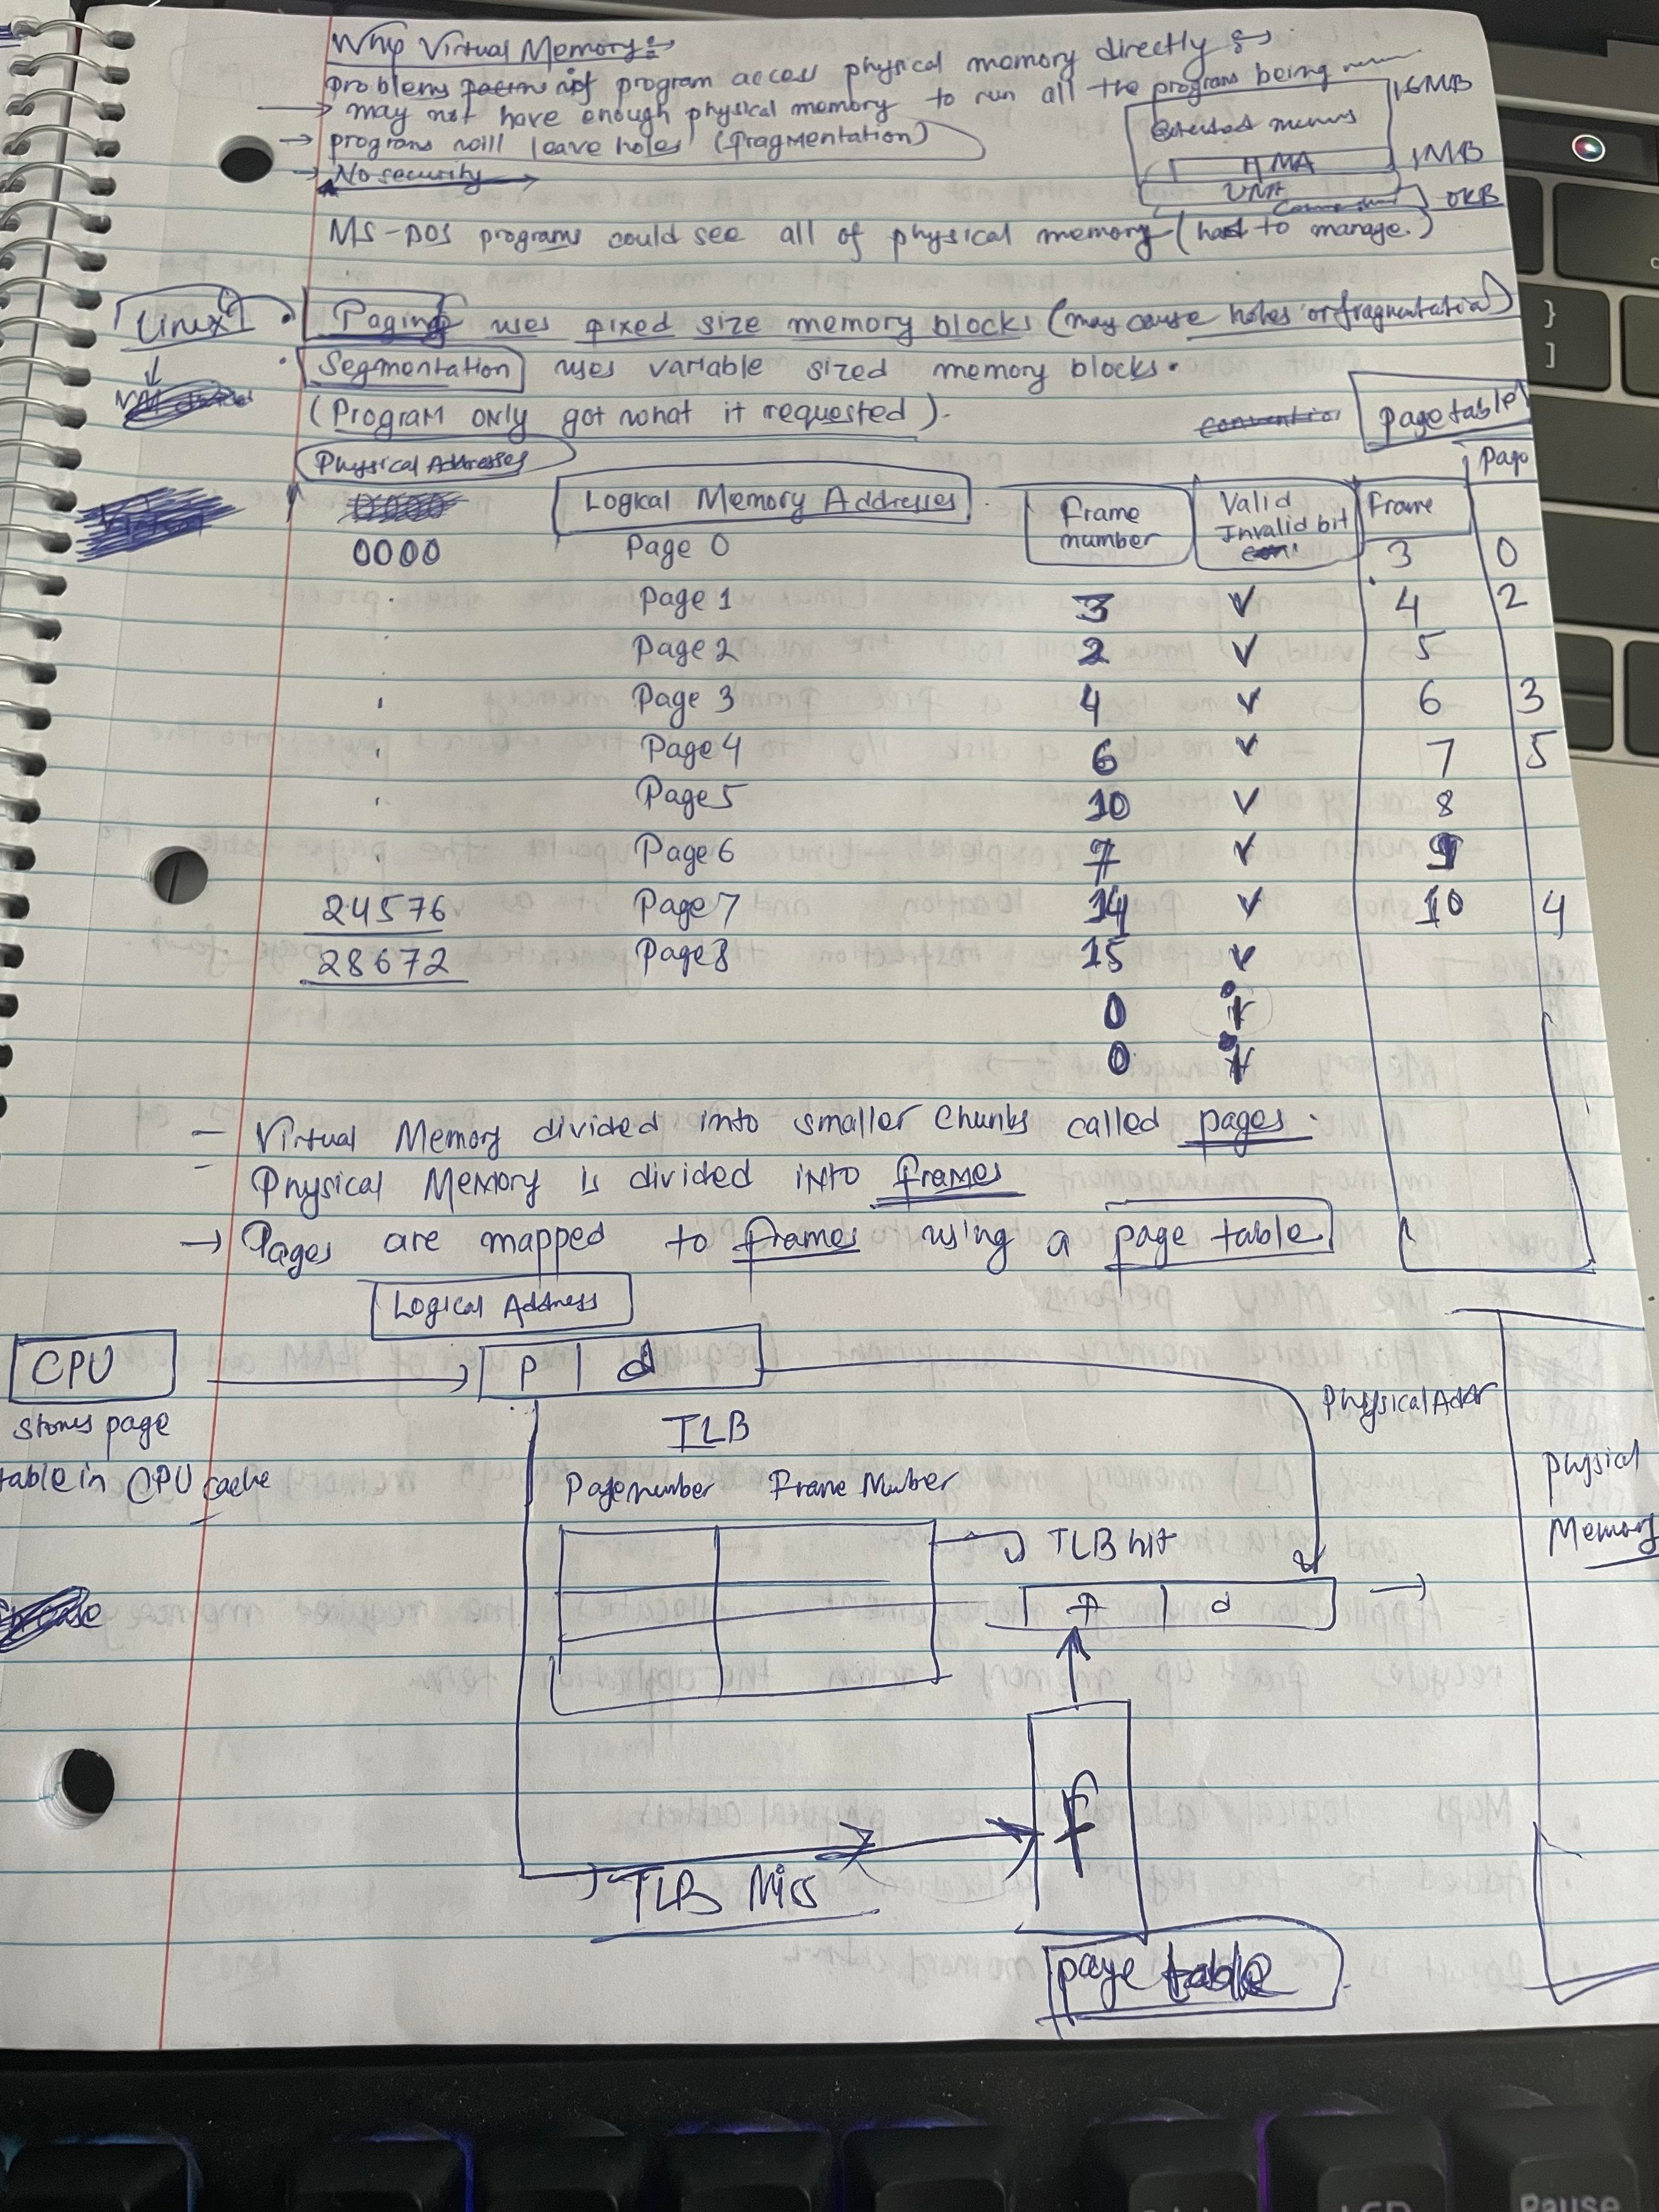 Why Virtual Memory:→
problems if program access physical memory directly :→
→ may not have enough physical memory to run all the programs being
→ programs will leave holes (fragmentation)
→ No security
16MB
HMA
1MB
UMA
0KB
MS-DOS programs could see all of physical memory (had to manage.)
Linux
• Paging uses fixed size memory blocks (may cause holes or fragmentation)
• Segmentation uses variable sized memory blocks.
(Program only got what it requested).
page table
Physical Addresses
Logical Memory Addresses
Frame number
Valid Invalid bit
Frame
Page
0000 Page 0 3 0
Page 1 3 V 4 2
Page 2 2 V 5
Page 3 4 V 6 3
Page 4 6 V 7 5
Page 5 10 V 8
Page 6 7 V 9
24576 Page 7 14 V 10 4
28672 Page 8 15 V
0 i
0 i
— Virtual Memory divided into smaller chunks called pages.
- Physical Memory is divided into frames
→ Pages are mapped to frames using a page table
Logical Address
CPU
P d
stores page
table in CPU cache
TLB
Page number Frame Number
Physical Addr
Physical
Memory
TLB hit
f d
f
TLB Miss
page table
Pause